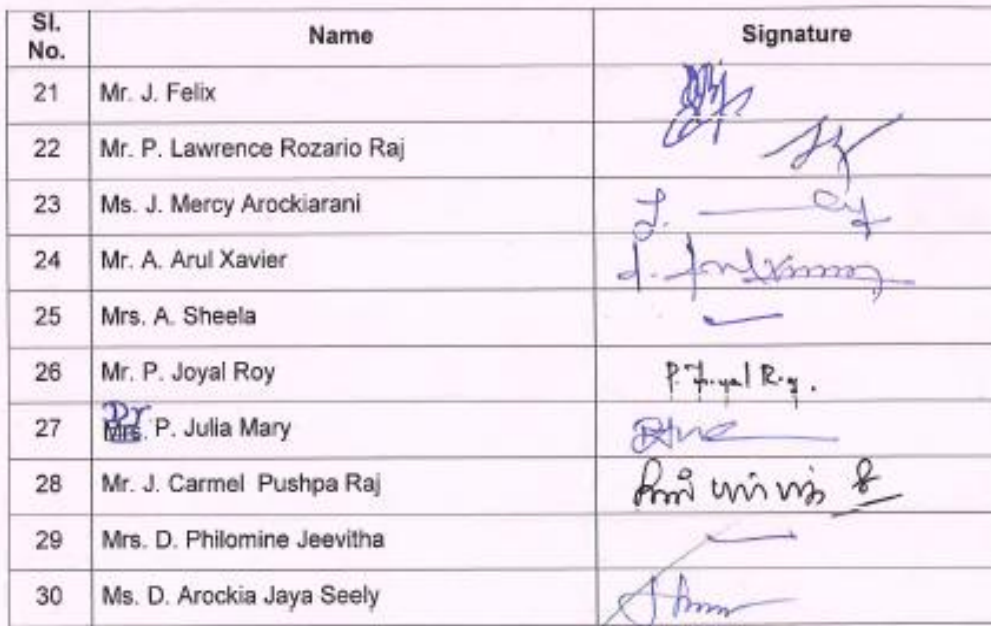 Sl. No. Name Signature
21 Mr. J. Felix
22 Mr. P. Lawrence Rozario Raj
23 Ms. J. Mercy Arockiarani J.
24 Mr. A. Arul Xavier
25 Mrs. A. Sheela
26 Mr. P. Joyal Roy P. Joyal Roy.
27 Dr Mrs. P. Julia Mary
28 Mr. J. Carmel Pushpa Raj
29 Mrs. D. Philomine Jeevitha
30 Ms. D. Arockia Jaya Seely